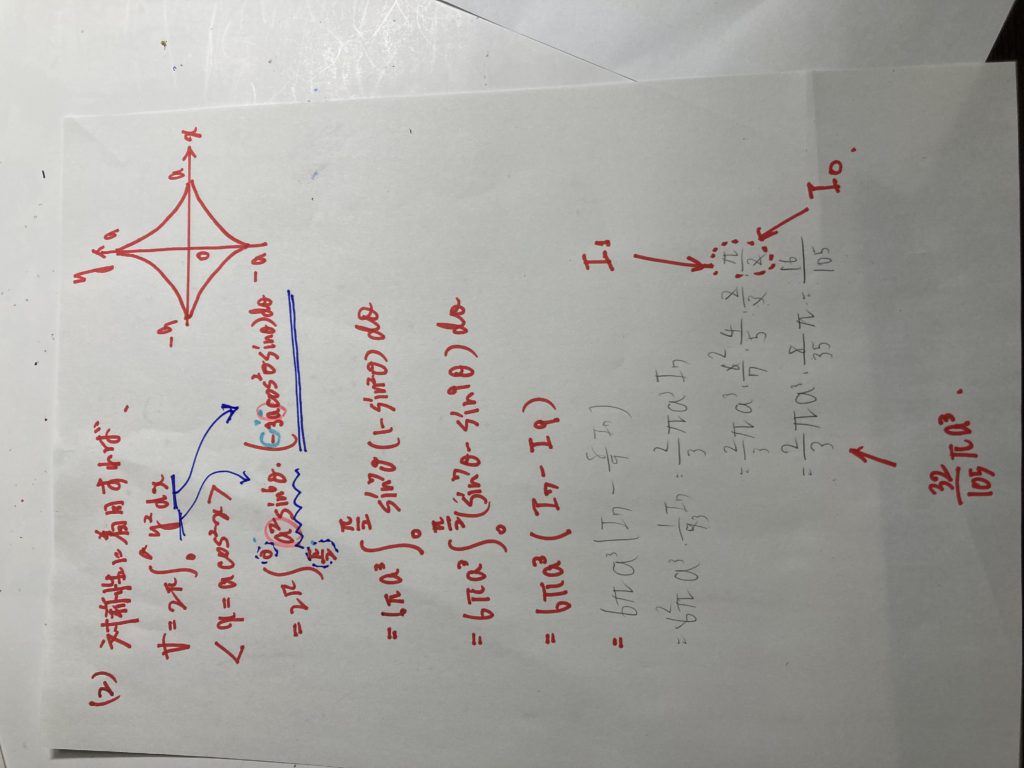 (2) 対称性に着目すれば、
V = 2π∫₀ᵃ y² dx
= 2π∫_{π/2}^{0} a²sin⁶θ・(-3a cos²θ sinθ)dθ
= 6πa³∫₀^{π/2} sin⁷θ(1-sin²θ)dθ
= 6πa³∫₀^{π/2}(sin⁷θ - sin⁹θ)dθ
= 6πa³(I₇ - I₉)
= 6πa³(I₇ - 8/9 I₇)
= 6πa³・1/9 I₇ = 2/3 πa³ I₇
= 2/3 πa³・6/7・4/5・2/3・π/2
= 2/3 πa³・8/35 π = 16/105
32/105 πa³.
y
a
-a
O
a
x
-a
I₁
I₀.